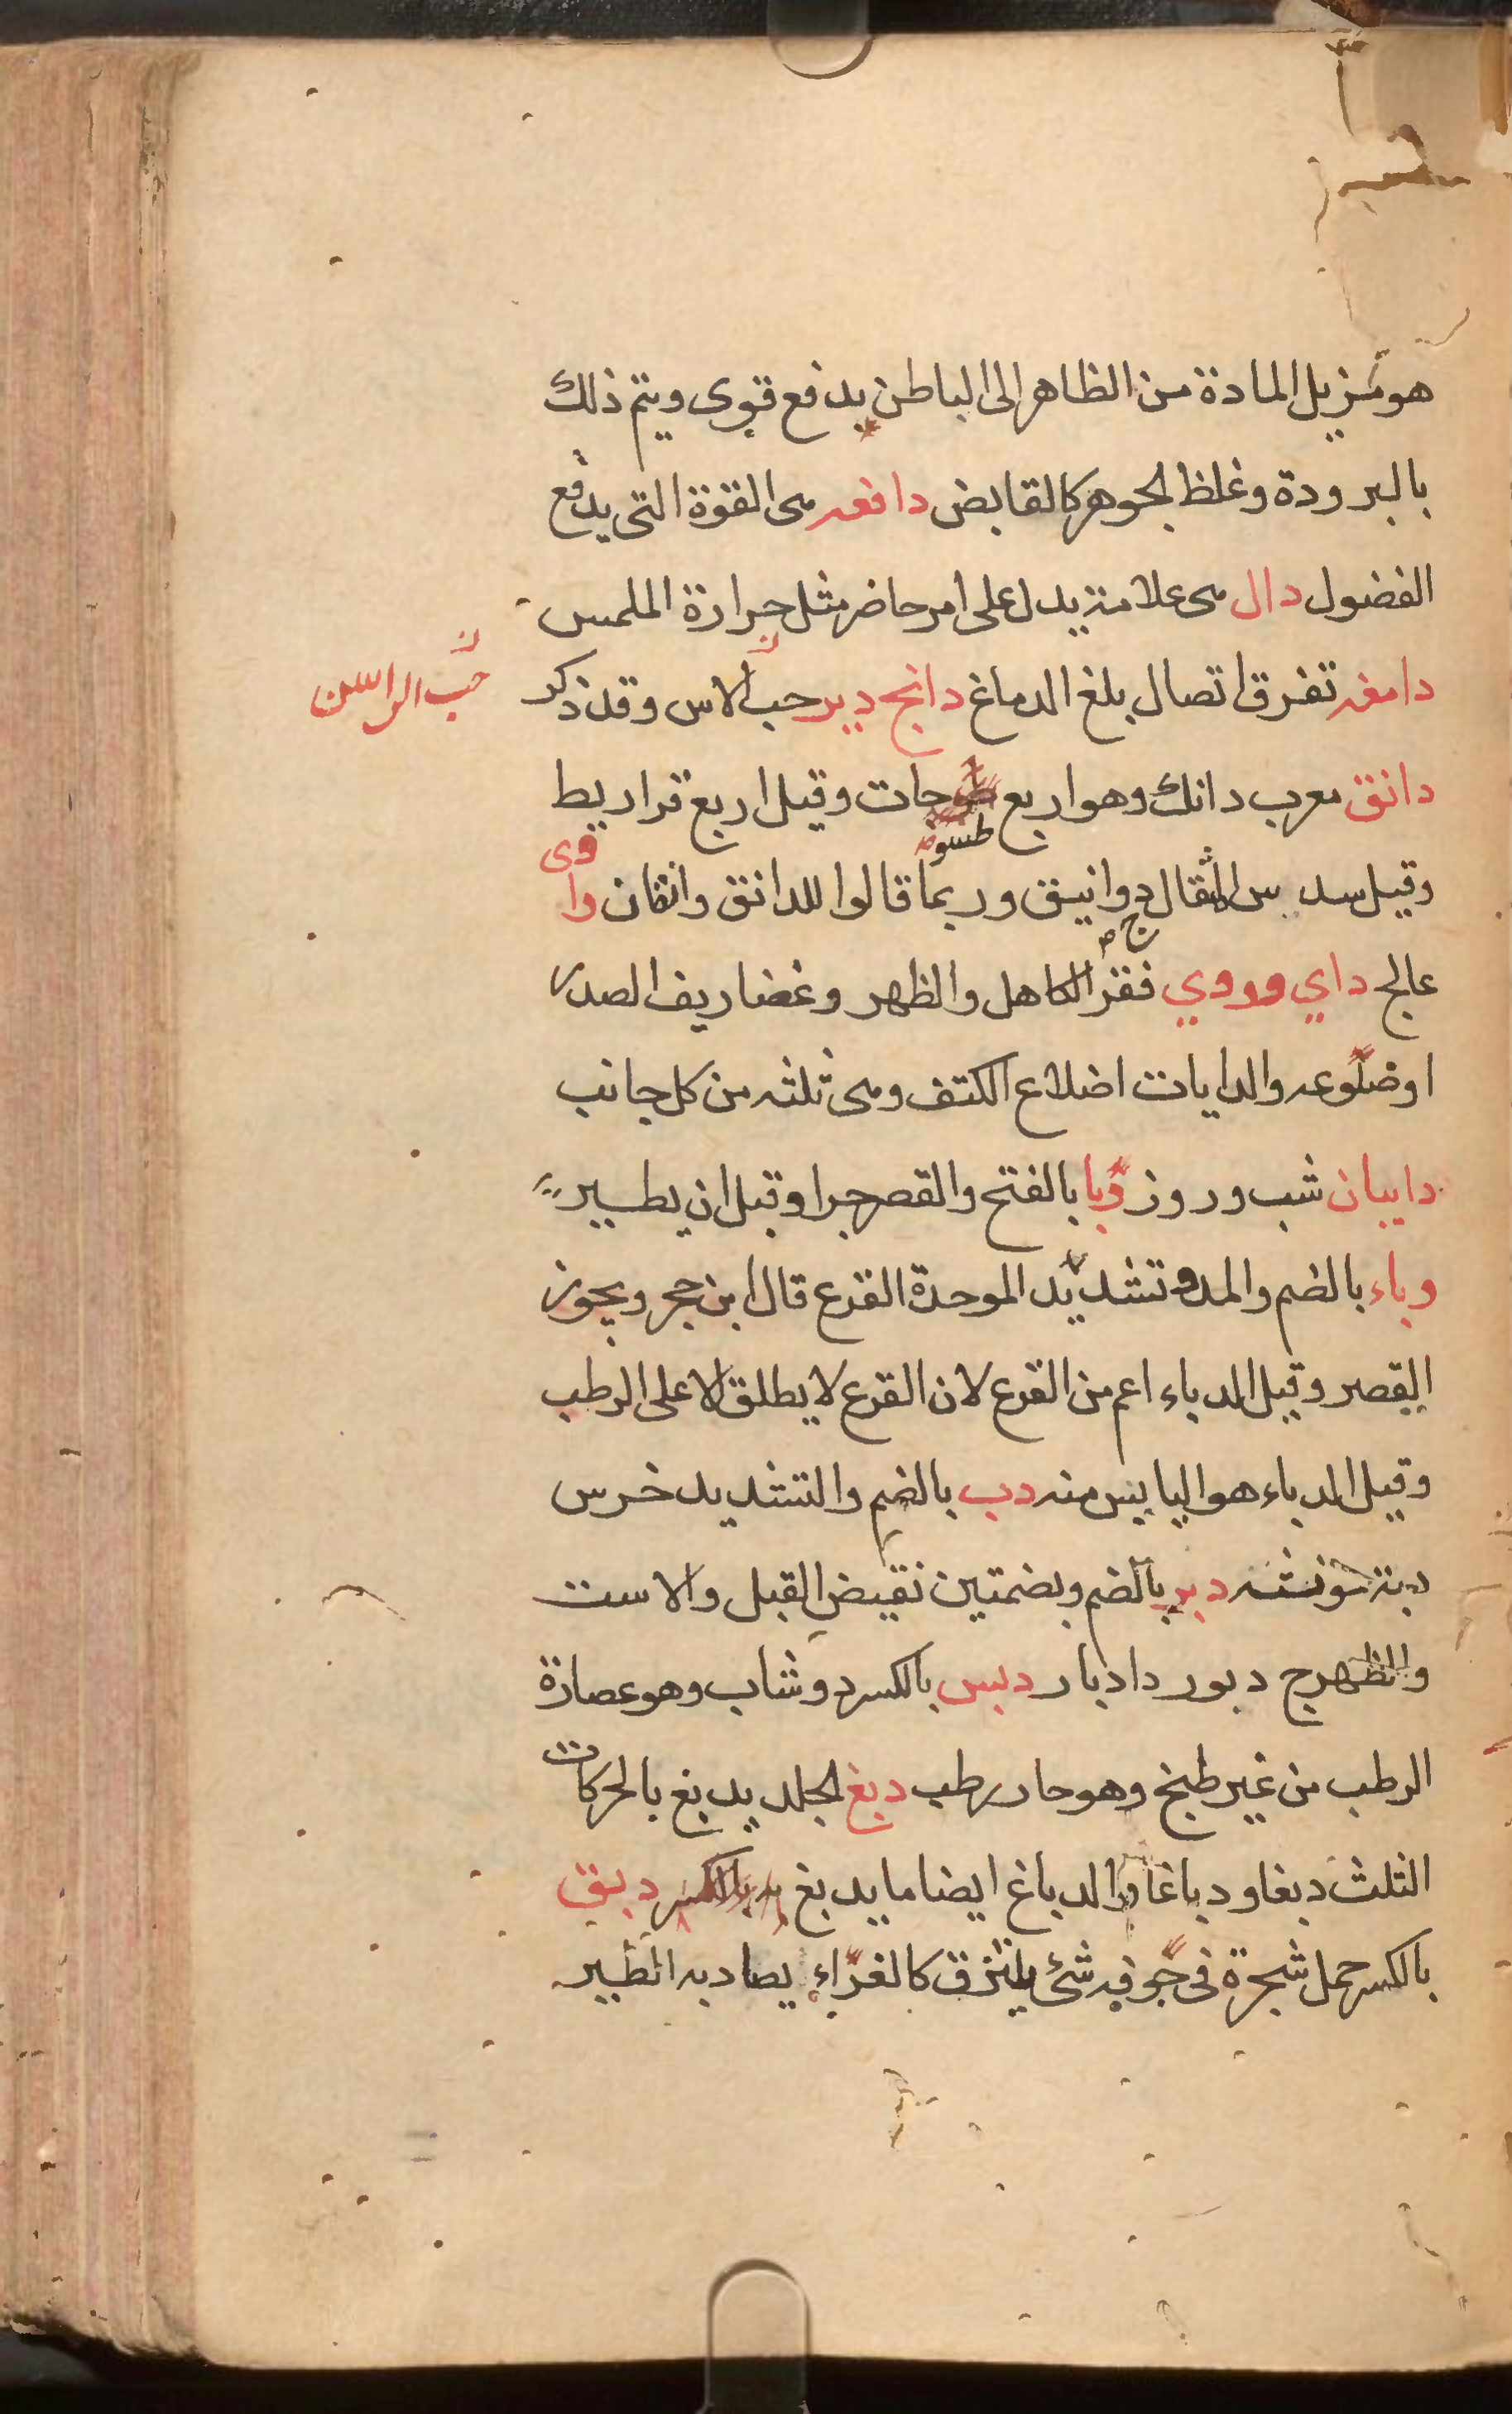 هو مزيل المادة من الظاهر الى الباطن يدفع قوى ويتم ذلك
بالبرودة وغلظ الجوهر كالقابض دافعه هى القوة التى يدفع
الفضول دال هى علامة يدل على امر حاضر مثل حرارة الملمس
دامغه تفرق اتصال بلغ الدماغ دانج دير حب الاس وقد ذكر
حب الراسن
دانق معرب دانك وهو اربع طسوجات وقيل اربع قراريط
وقيل سدس المثقال ج دوانيق وربما قالوا للدانق وانقان داوى
عالج داي ودوي فقر الكاهل والظهر وغضاريف الصدر
او ضلوعه والدايات اضلاع الكتف وهى ثلثه من كل جانب
دايبان شب وروز دبا بالفتح والقصر جراد قبل ان يطير
وباء بالضم والمد وتشديد الموحدة القرع قال ابن حجر ويجوز
القصر وقيل الدباء اعم من القرع لان القرع لا يطلق الا على الرطب
وقيل الدباء هو اليابس منه دب بالضم والتشديد خرس
دبة مونثه دبر بالضم وبضمتين نقيض القبل والاست
والظهر ج دبور دادبار دبس بالكسر دوشاب وهو عصارة
الرطب من غير طبخ وهو حار رطب دبغ الجلد يدبغ بالحركات
الثلث دبغا ودباغا والدباغ ايضا ما يدبغ به بالكسر دبق
بالكسر حمل شجرة فى جوفه شئ يلتزق كالغراء يصاد به الطير